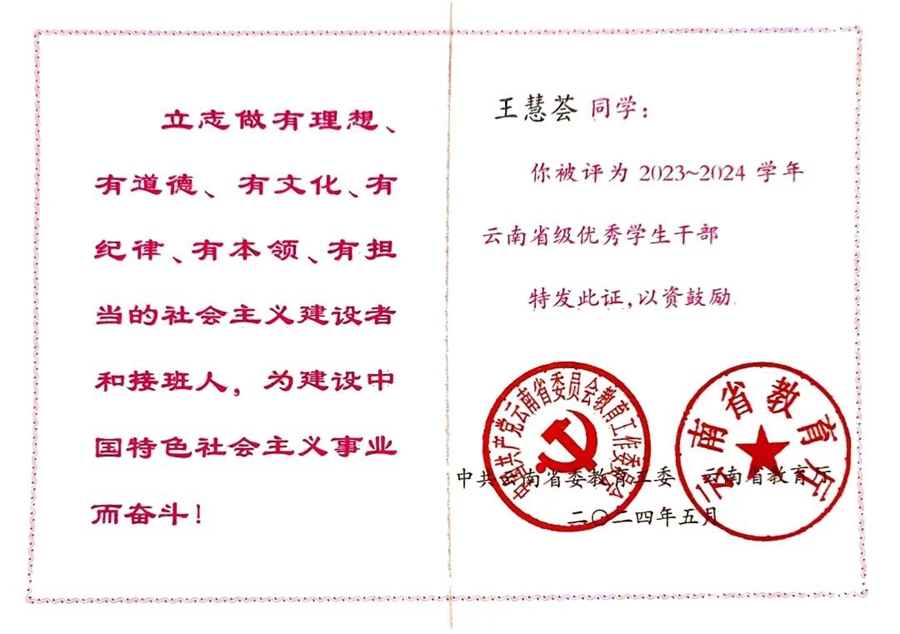 立志做有理想、
有道德、有文化、有
纪律、有本领、有担
当的社会主义建设者
和接班人，为建设中
国特色社会主义事业
而奋斗！
王慧荟 同学：
你被评为 2023~2024 学年
云南省级优秀学生干部
特发此证，以资鼓励.
中国共产党云南省委员会教育工作委员会
云南省教育厅
中共云南省委教育工委 云南省教育厅
二〇二四年五月